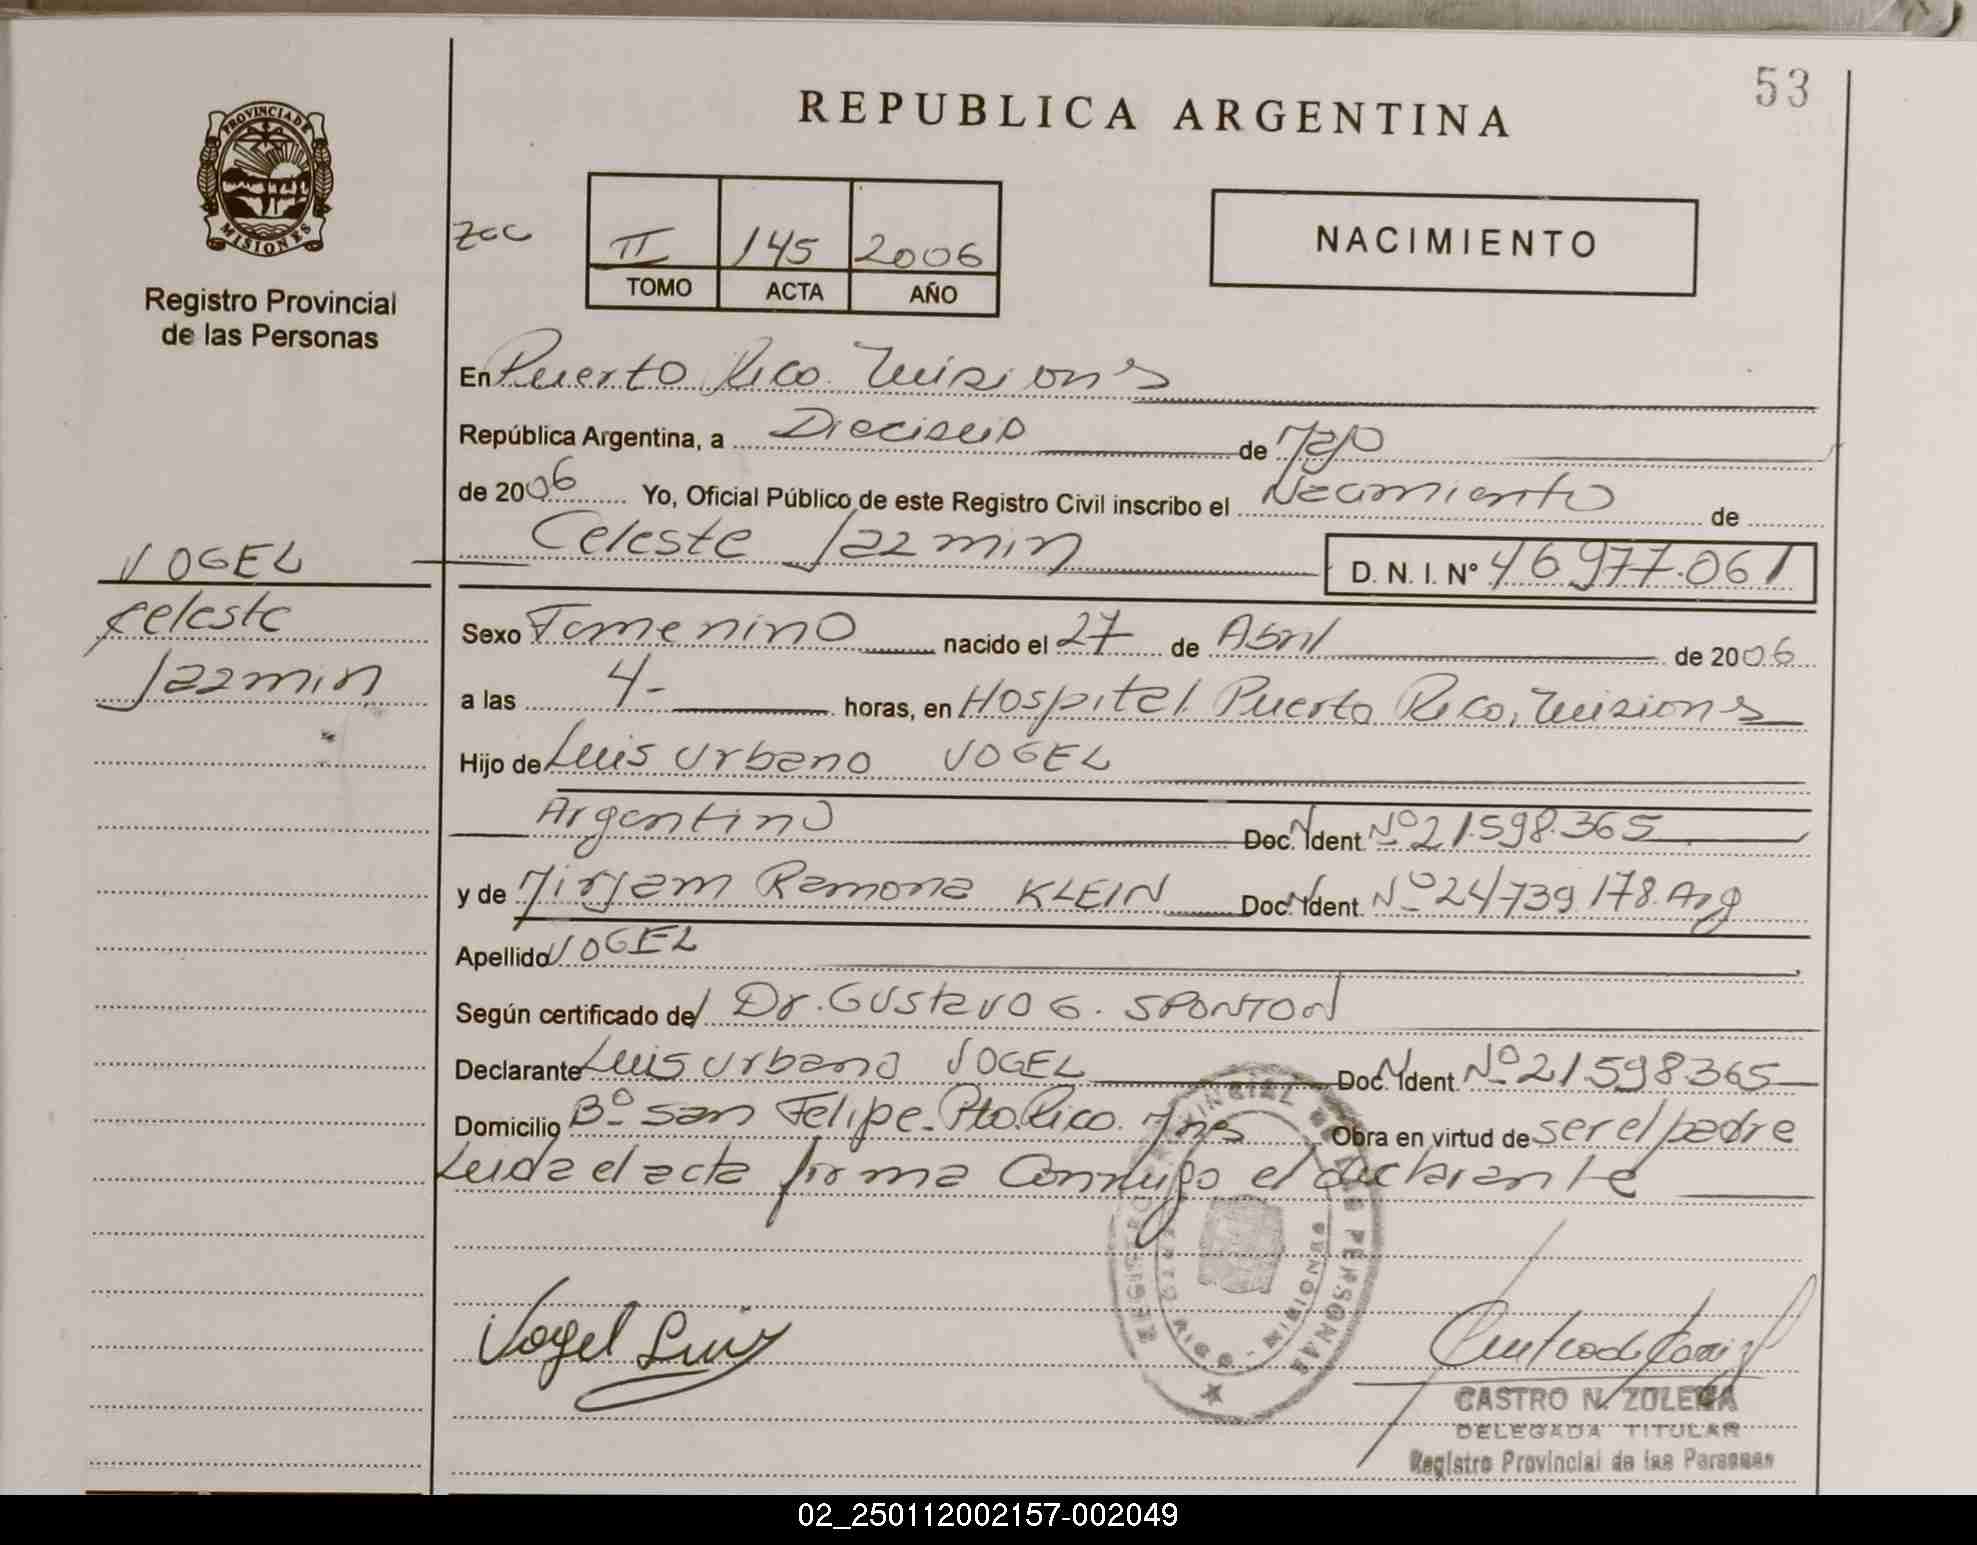 53
REPUBLICA ARGENTINA
PROVINCIA DE
MISIONES
Registro Provincial
de las Personas
zcc
II 145 2006
TOMO ACTA AÑO
NACIMIENTO
En Puerto Rico Misiones
República Argentina, a Dieciseis de Mayo
de 2006 Yo, Oficial Público de este Registro Civil inscribo el Nacimiento de
Celeste Jazmin D. N. I. Nº 46977.061
VOGEL
Celeste
Jazmin
Sexo Femenino nacido el 27 de Abril de 2006
a las 4- horas, en Hospital Puerto Rico, Misiones
Hijo de Luis Urbano VOGEL
Argentino Doc. Ident. Nº 21.598.365
y de Mirjam Ramona KLEIN Doc. Ident. Nº 24739178. Arg
Apellido VOGEL
Según certificado del Dr. Gustavo G. SPONTON
Declarante Luis Urbano VOGEL Doc. Ident. Nº 21598365
Domicilio Bº San Felipe - Pto. Rico. Mnes Obra en virtud de ser el padre
Leida el acta firma conmigo el declarante
REGISTRO PROVINCIAL DE LAS PERSONAS
RICO - MISIONES
Vogel Luis
CASTRO N. ZULEMA
DELEGADA TITULAR
Registro Provincial de las Personas
02_250112002157-002049